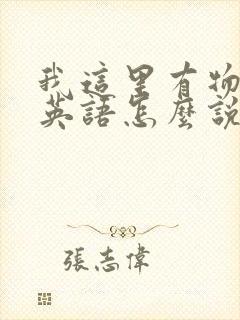 我這里有物
英語怎麼說
張志偉